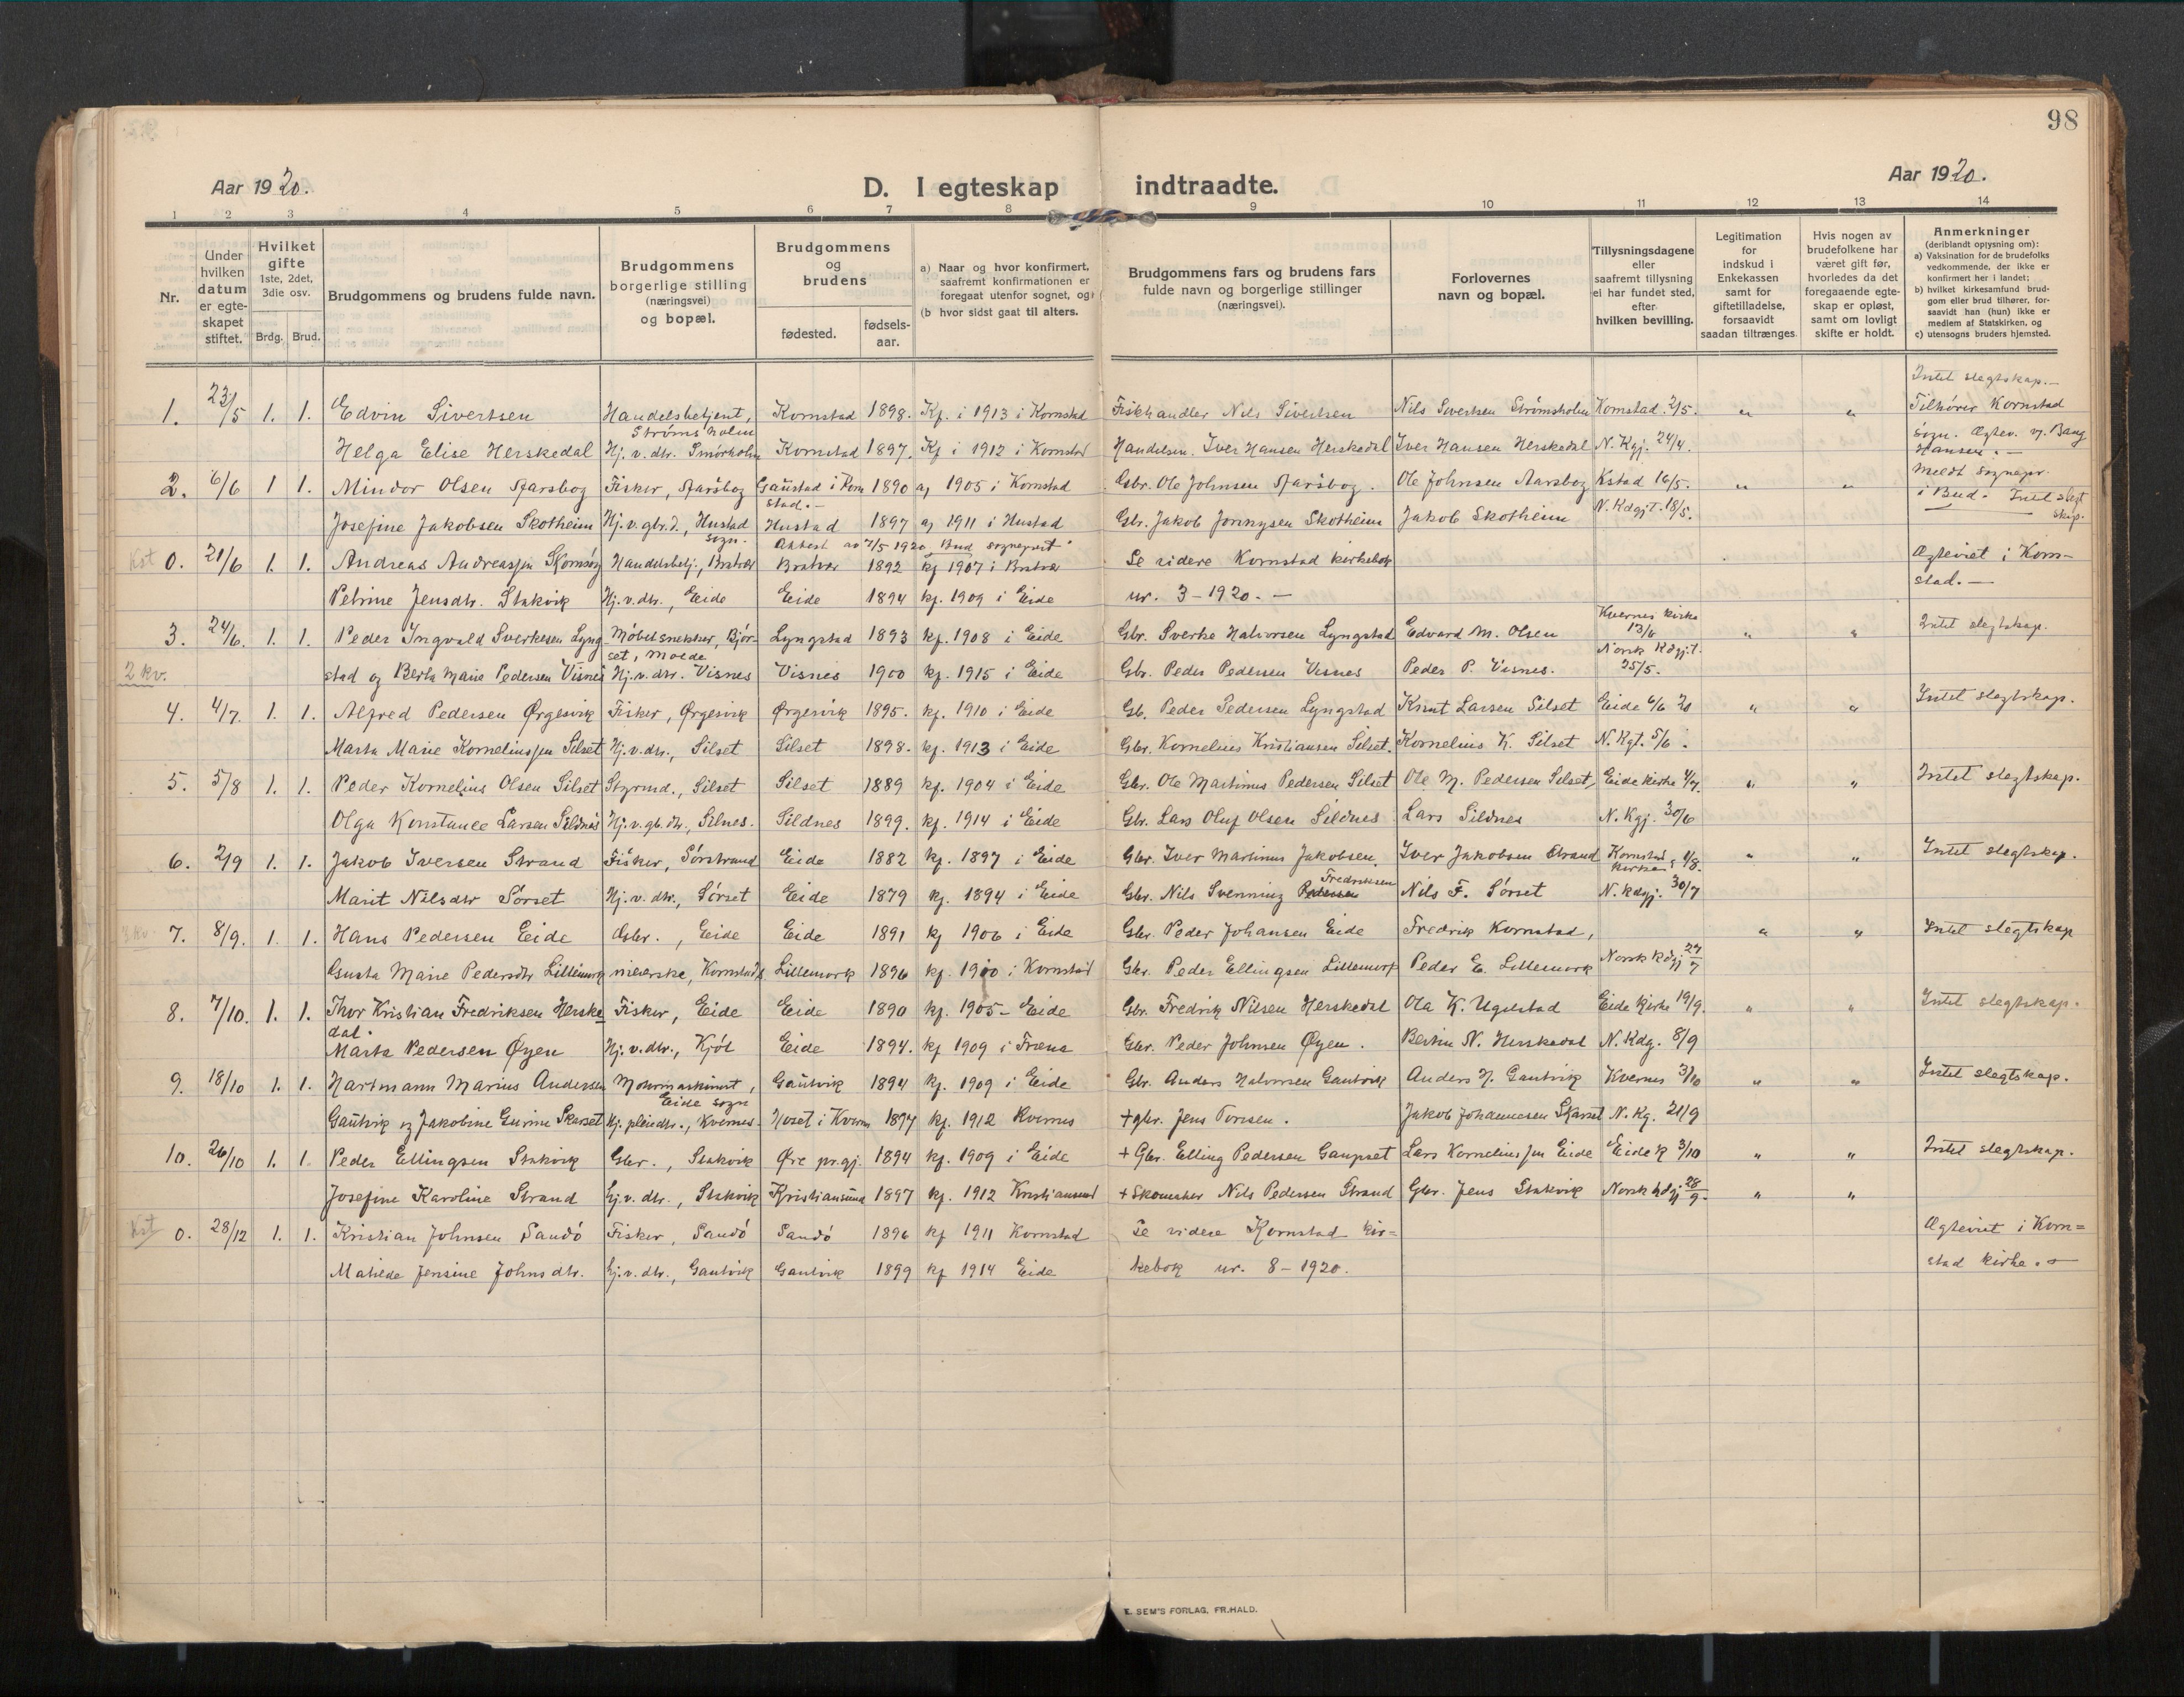 98
Aar 1920.
D. I egteskap indtraadte.
Aar 1920.
1 2 3 4 5 6 7 8 9 10 11 12 13 14
Nr.
Under hvilken datum er egteskapet stiftet.
Hvilket gifte 1ste, 2det, 3die osv.
Brdg. Brud.
Brudgommens og brudens fulde navn.
Brudgommens borgerlige stilling (næringsvei) og bopæl.
Brudgommens og brudens
fødested. fødselsaar.
a) Naar og hvor konfirmert, saafremt konfirmationen er foregaat utenfor sognet, og
(b hvor sidst gaat til alters.
Brudgommens fars og brudens fars fulde navn og borgerlige stillinger (næringsvei).
Forlovernes navn og bopæl.
Tillysningsdagene eller saafremt tillysning ei har fundet sted, efter hvilken bevilling.
Legitimation for indskud i Enkekassen samt for giftetilladelse, forsaavidt saadan tiltrænges.
Hvis nogen av brudefolkene har været gift før, hvorledes da det foregaaende egteskap er opløst, samt om lovligt skifte er holdt.
Anmerkninger (deriblandt oplysning om):
a) Vaksination for de brudefolks vedkommende, der ikke er konfirmert her i landet;
b) hvilket kirkesamfund brudgom eller brud tilhører, forsaavidt han (hun) ikke er medlem af Statskirken, og
c) utensogns bruders hjemsted.
1. 23/5 1. 1. Edvin Sivertsen Handelsbetjent, Strømsholm Kornstad 1898. Kf. i 1913 i Kornstad Fiskhandler Nils Sivertsen Nils Sivertsen Strømsholm Kornstad 2/5. " " Intet slegtskap.— Tilhører Kornstad
Helga Elise Herskedal Hj. v. dtr. Smørholm Kornstad 1897. Kf i 1912 i Kornstad Handelsm. Iver Hansen Herskedal Iver Hansen Herskedal N. Kgj. 24/4. sogn. Bang Hansen.—
2. 6/6 1 1. Mindor Olsen Aarsbog Fisker, Aarsbog Gaustad i Kornstad.— 1890 a, 1905 i Kornstad Gbr. Ole Johnsen Aarsbog. Ole Johnsen Aarsbog Kstad 16/5. " " Meldt sognepr.
Josefine Jakobsen Skotheim Hj. v. gbr. d, Hustad sogn. Hustad 1897 a, 1911 i Hustad Gbr. Jakob Skotheim Jakob Skotheim N. Kdgjt. 18/5. i Bud. Intet slegtskap.
Attest av 7/5 1920, Bud sogneprest
Kst 0. 21/6 1. 1. Andreas Andreassen Handelsbetj., Bratvær Bratvær 1892 kf 1907 i Bratvær Se videre Kornstad kirkebok Ægteviet i Korn-
Petrine Jensdtr. Stakvik Hj. v. dtr., Eide Eide 1894 kf. 1909 i Eide nr. 3-1920.— stad.—
3. 24/6. 1. 1. Peder Ingvald Sverkesen Lyng Møbelsnekker, Bjørset, Molde Lyngstad 1893 kf. 1908 i Eide Gbr. Sverke Halvorsen Lyngstad Edvard M. Olsen Kvernes kirke 13/6 " " Intet slegtskap.
2 kv. stad og Berta Marie Pedersen Visnes Hj. v. dtr. Visnes Visnes 1900 kf. 1915 i Eide Gbr. Peder Pedersen Visnes Peder P. Visnes. Norsk Kdgjt. 25/5.
4. 4/7. 1. 1. Alfred Pedersen Ørgesvik Fisker, Ørgesvik Ørgesvik 1895. kf. 1910 i Eide Gb. Peder Pedersen Lyngstad Knut Larsen Silset Eide 6/6 20 " " Intet slegtskap.
Marta Marie Korneliussen Silset Hj. v. dtr., Silset Silset 1898. kf. 1913 i Eide Gbr. Kornelius Kristiansen Silset. Kornelius K. Silset N. Kgt. 5/6.
5. 5/8 1. 1. Peder Kornelius Olsen Silset Styrmd., Silset Silset 1889 kf. 1904 i Eide Gbr. Ole Martinus Pedersen Silset Ole M. Pedersen Silset, Eide kirke 4/7. " " Intet slegtskap.
Olga Konstance Larsen Sildnes Hj. v. gb. dtr., Silnes. Sildnes 1899. kf. 1914 i Eide Gbr. Lars Oluf Olsen Sildnes Lars Sildnes N. Kgj. 30/6
6. 2/9 1. 1. Jakob Iversen Strand Fisker, Sørstrand Eide 1882 kf. 1897 i Eide Gbr. Iver Martinus Jakobsen. Iver Jakobsen Strand Kornstad kirke 1/8. " " Intet slegtskap.
Marit Nilsdtr Sørset Hj. v. dtr., Sørset Eide 1879 kf. 1894 i Eide Gbr. Nils Svenning Pedersen Fredriksen Nils F. Sørset N. Kdgj. 30/7
3 kv. 7. 8/9. 1. 1. Hans Pedersen Eide Gbr., Eide Eide 1891 kf 1906 i Eide Gbr. Peder Johansen Eide Fredrik Kornstad, " " Intet slegtskap
Gusta Marie Pedersdtr Lillemork meierske, Kornstad Lillemork 1896 kf. 1910 i Kornstad Gbr. Peder Ellingsen Lillemork Peder E. Lillemork Norsk Kdgj 24/7
8. 7/10. 1. 1. Thor Kristian Fredriksen Herskedal. Fisker, Eide Eide 1890 kf. 1905- Eide Gbr. Fredrik Nilsen Herskedal Ola K. Ugelstad Eide Kirke 19/9. " " Intet slegtskap.
Marta Pedersen Øyen Hj. v. dtr., Kjøl Eide 1894. kf 1909 i Fræna Gbr. Peder Johnsen Øyen. N. Herskedal N. Kdg. 8/9
9. 18/10 1. 1. Hartmann Marius Andersen Motormaskinist, Eide sogn Gautvik 1894 kf. 1909 i Eide Gbr. Anders Halvorsen Gautvik Anders H. Gautvik Kvernes 3/10 " " Intet slegtskap.
Gautvik og Jakobine Gurine Skarset Hj. pleiedtr., Kvernes Hoset i Kvernes 1897 kf. 1912 Kvernes + gbr. Jens Toresen. Jakob Johannesen Skarset N. Kg. 21/9
10. 26/10 1. 1. Peder Ellingsen Stakvik Gbr., Stakvik Øre pr.gj. 1894 kf. 1909 i Eide + Gbr. Elling Pedersen Gaupset Lars Korneliussen Eide Eide k 3/10 " " Intet slegtskap.
Josefine Karoline Strand Hj. v. dtr., Stakvik Kristiansund 1897 kf. 1912 Kristiansund + Skomaker Nils Pedersen Strand Gbr. Jens Stakvik Norsk kdgj 28/9. " "
Kst 0. 28/12 1. 1. Kristian Johnsen Sandø Fisker, Sandø Sandø 1896 kf 1911 Kornstad Se videre Kornstad kir= Ægteviet i Korn=
Matilde Jensine Johnsdtr. Hj. v. dtr., Gautvik Gautvik 1899 kf 1914 Eide kebok nr. 8-1920. stad kirke.
E. SEM'S FORLAG, FR.HALD.